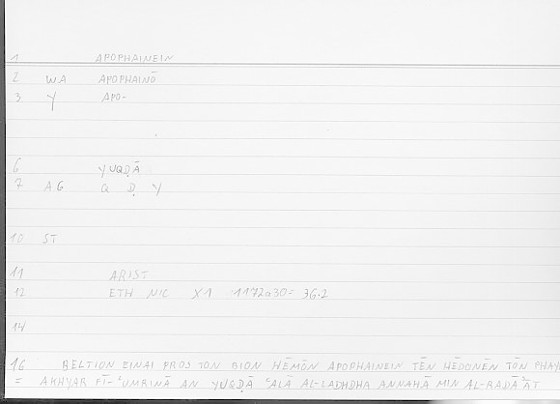 1 APOPHAINEIN
2 WA APOPHAINŌ
3 Y APO-
6 YUQḌĀ
7 AG Q Ḍ Y
10 ST
11 ARIST
12 ETH NIC X1 1172a30= 36.2
14
16 BELTION EINAI PROS TON BION HĒMŌN APOPHAINEIN TĒN HĒDONĒN TŌN
= AKHYAR FĪ-ʿUMRINĀ AN YUQḌĀ ʿALĀ AL-LADHDHA ANNAHĀ MIN AL-RADĀʾĀT